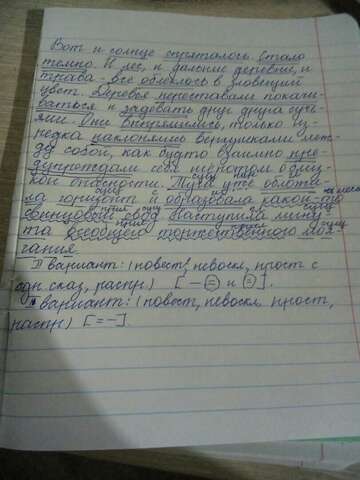 Вот и солнце спряталось. Стало
темно. И лес, и дальние деревни, и
трава - все облеклось в зловещий
цвет. Деревья переставали покачи-
ваться и задевать друг друга сучь-
ями. Они выпрямились, только из-
редка наклонялись верхушками меж-
ду собой, как будто взаимно пре-
дупреждали себя шепотом о близ-
кой опасности. Туча уже обложи-
ла горизонт и образовала какой-то
свинцовый свод. Наступила мину-
та всеобщего торжественного мол-
чания.
I вариант: (повест, невоскл, прост с
одн. сказ, распр.) [— = и =].
II вариант: (повест, невоскл. прост,
распр) [= —].
сущ
сущ
прил
сущ
прил
сущ